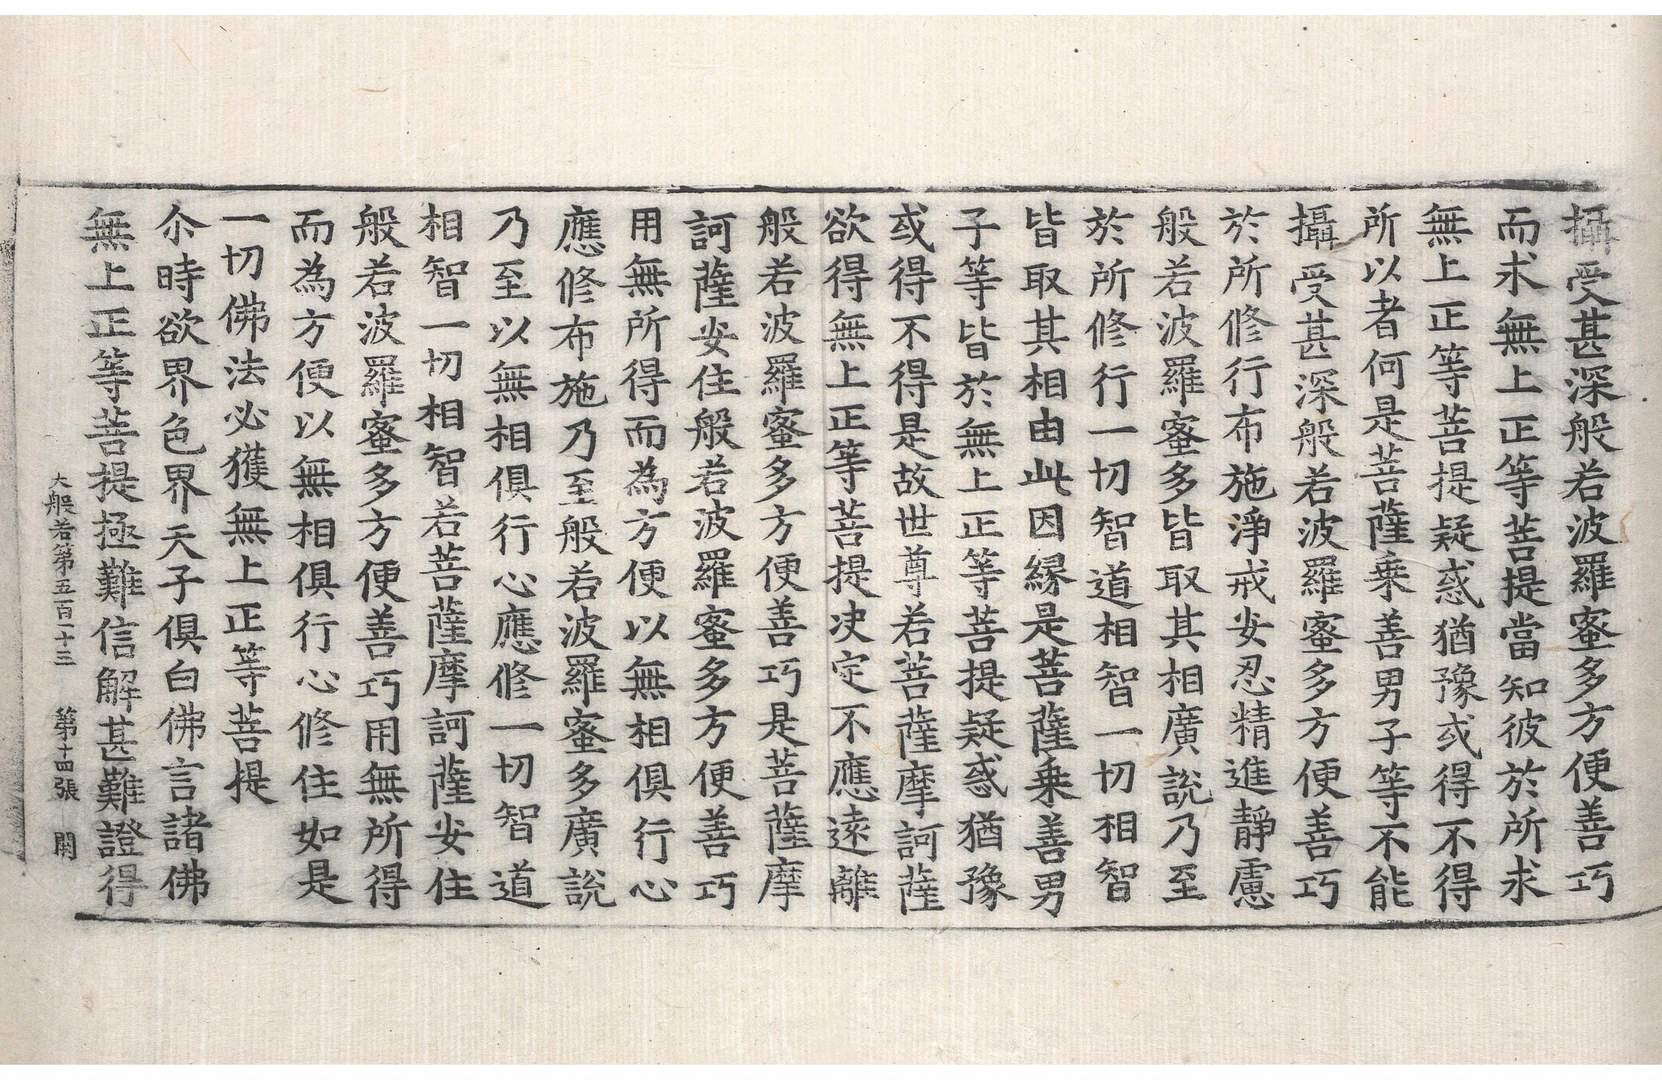 攝受甚深般若波羅蜜多方便善巧
而求無上正等菩提當知彼於所求
無上正等菩提疑惑猶豫或得不得
所以者何是菩薩乘善男子等不能
攝受甚深般若波羅蜜多方便善巧
於所修行布施淨戒安忍精進靜慮
般若波羅蜜多皆取其相廣說乃至
於所修行一切智道相智一切相智
皆取其相由此因緣是菩薩乘善男
子等皆於無上正等菩提疑惑猶豫
或得不得是故世尊若菩薩摩訶薩
欲得無上正等菩提决定不應遠離
般若波羅蜜多方便善巧是菩薩摩
訶薩安住般若波羅蜜多方便善巧
用無所得而為方便以無相俱行心
應修布施乃至般若波羅蜜多廣說
乃至以無相俱行心應修一切智道
相智一切相智若菩薩摩訶薩安住
般若波羅蜜多方便善巧用無所得
而為方便以無相俱行心修住如是
一切佛法必獲無上正等菩提
尒時欲界色界天子俱白佛言諸佛
無上正等菩提極難信解甚難證得
大般若第五百一十三 第十四張 閏